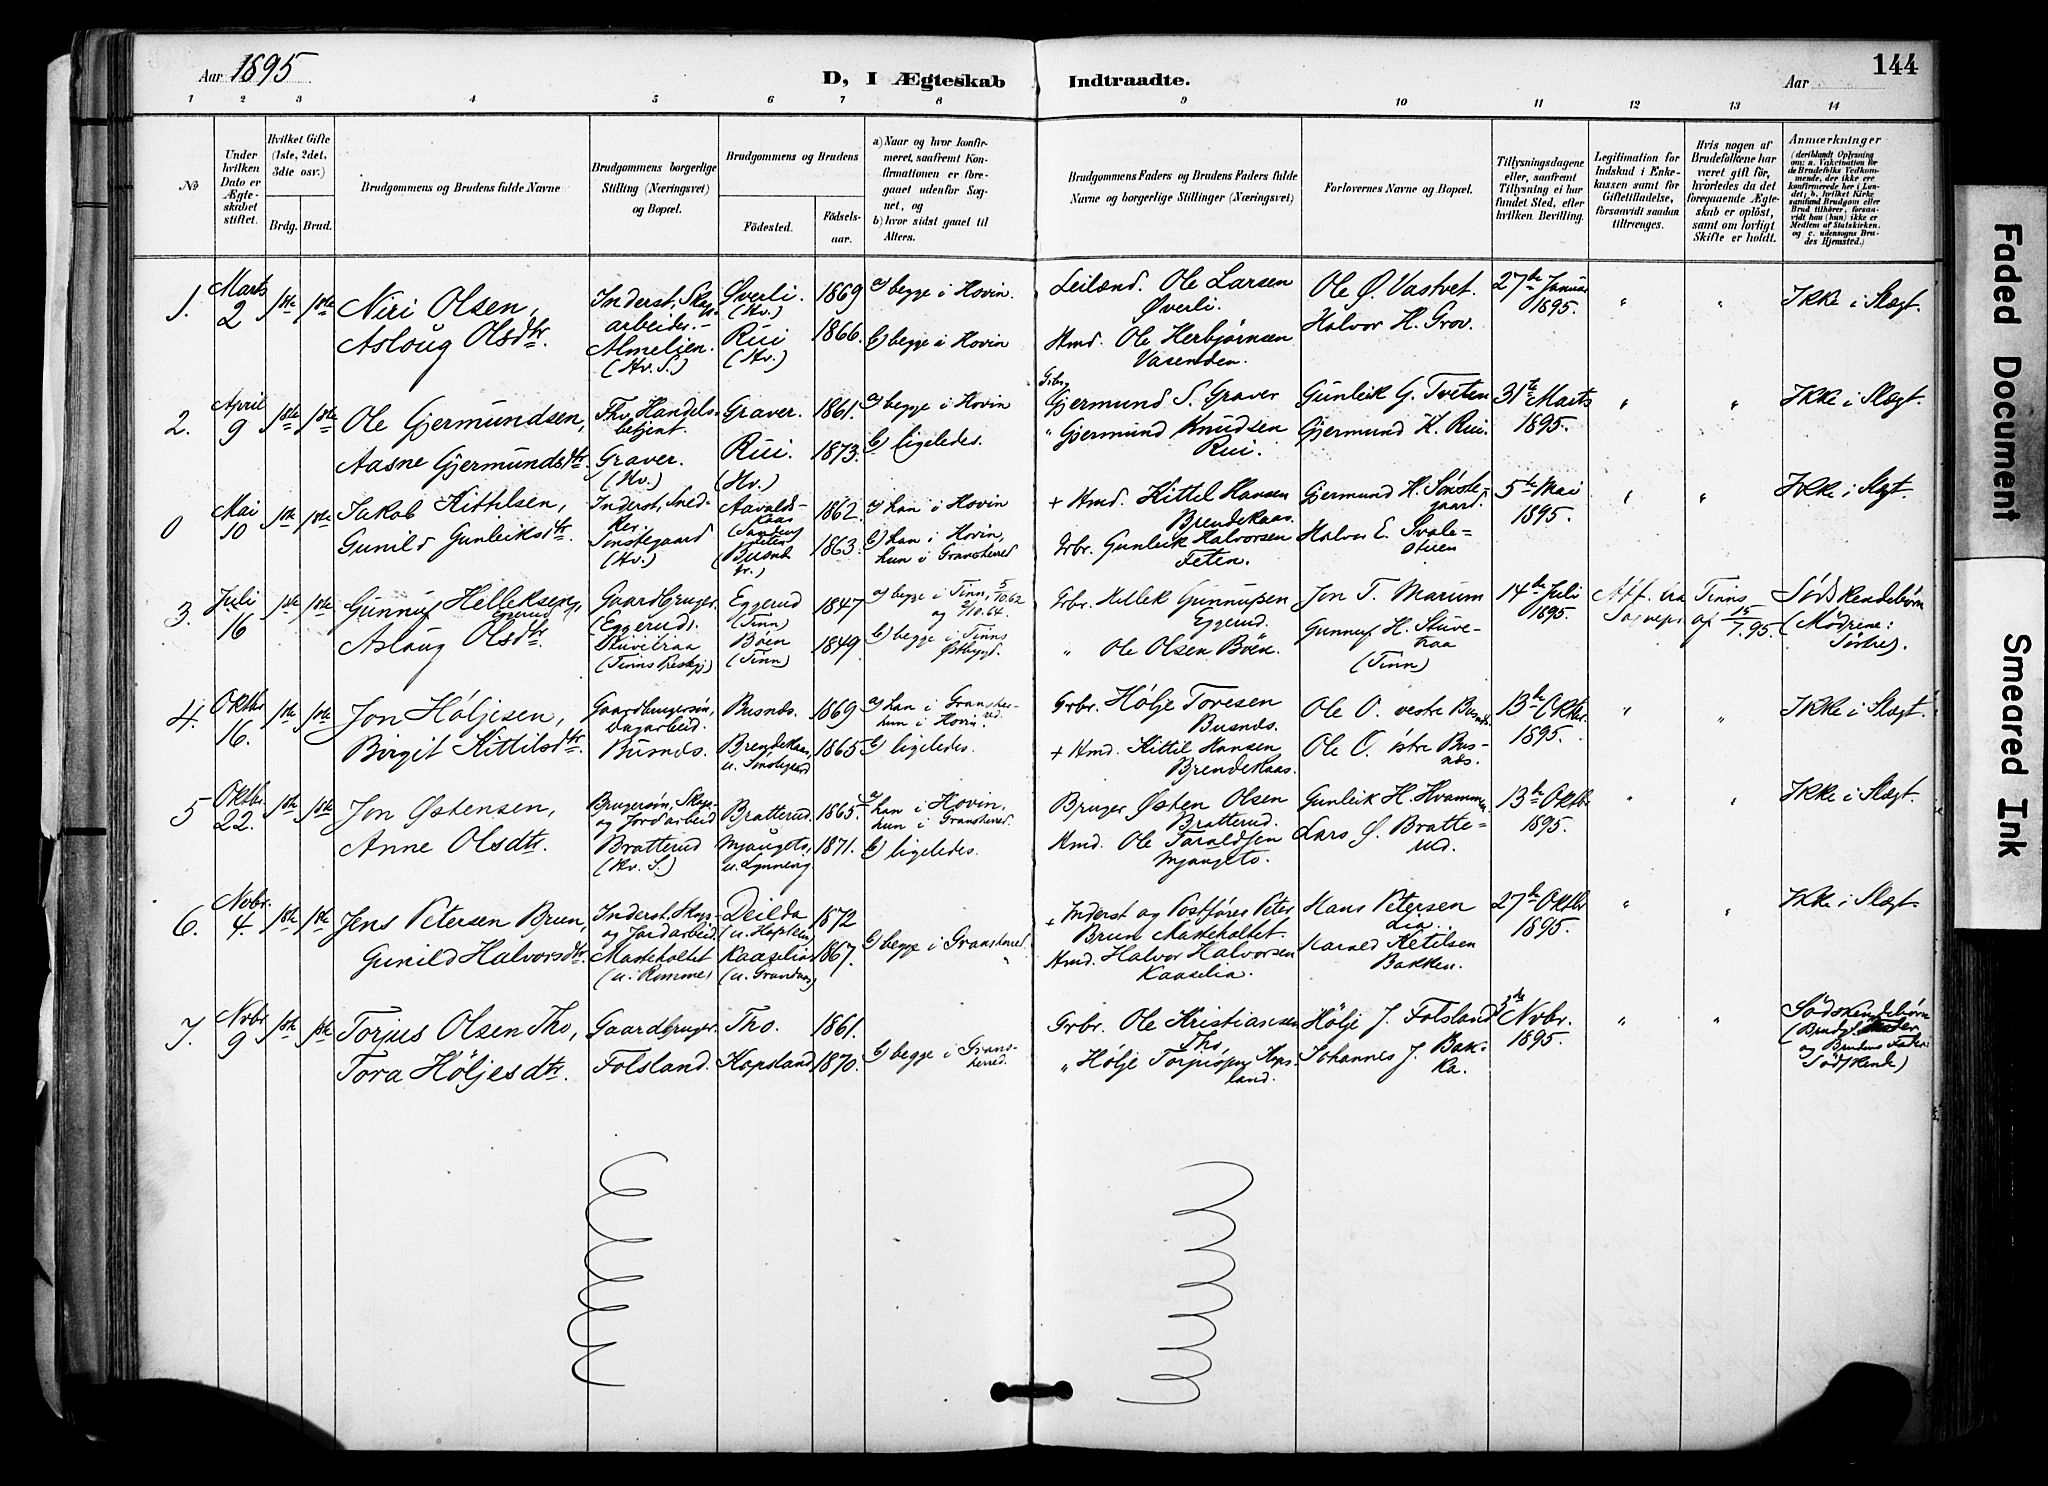 Aar 1895
D, I Ægteskab Indtraadte.
Aar
144
1 2 3 4 5 6 7 8 9 10 11 12 13 14
No
Under hvilken Dato er Ægteskabet stiftet.
Hvilket Gifte (1ste, 2det, 3die osv.)
Brdg. Brud.
Brudgommens og Brudens fulde Navne
Brudgommens borgerlige Stilling (Næringsvei) og Bopæl.
Brudgommens og Brudens
Fødested.
Fødselsaar.
a) Naar og hvor konfirmeret, saafremt Konfirmationen er foregaaet udenfor Sognet, og
b) hvor sidst gaaet til Alters.
Brudgommens Faders og Brudens Faders fulde Navne og borgerlige Stillinger (Næringsvei)
Forlovernes Navne og Bopæl.
Tillysningsdagene eller, saafremt Tillysning ei har fundet Sted, efter hvilken Bevilling.
Legitimation for Indskud i Enkekassen samt for Giftetilladelse, forsaavidt saadan tiltrænges.
Hvis nogen af Brudefolkene har været gift før, hvorledes da det foregaaende Ægteskab er opløst, samt om lovligt Skifte er holdt.
Anmærkninger
(deriblandt Oplysning om: a. Vaccination for de Brudefolks Vedkommende, der ikke ere konfirmerede her i Landet; b. hvilket Kirkesamfund Brudgom eller Brud tilhører, forsaavidt han (hun) ikke er Medlem af Statskirken, og c. udensogns Brudes Hjemsted.)
1. Marts 2 1ste 1ste
Niri Olsen,
Aslaug Olsdtr.
Inderst, Skovarbeider.
Almelien.
(Hv. S.)
Øverli. (Hv.) 1869
Rui (Hv.) 1866.
a) begge i Hovin.
b) begge i Hovin
Leilænd. Ole Larsen Øverli.
Hmd. Ole Herbjørnsen Vasenden.
Ole Ø. Vastvet.
Halvor H. Grov.
27de Januar 1895.
" "
Ikke i Slægt.
2. April 9 1ste 1ste
Ole Gjermundsen,
Aasne Gjermundsdtr
Fhv. Handelsbetjent.
Graver. (Hv.)
Graver. 1861.
Rui. (Hv.) 1873.
a) begge i Hovin
b) ligeledes.
Grbr. Gjermund S. Graver
" Gjermund Knudsen Rui.
Gunleik G. Tveten
Gjermund K. Rui.
31te Marts 1895.
" "
Ikke i Slægt.
0 Mai 10 1ste 1ste
Jakob Kittilsen,
Gunild Gunleiksdtr.
Inderst, Snedker
Sønstegaard (Hv.)
1862.
1863.
a) han i Hovin
b) han i Hovin, hun i Gransherred
+ Hmd. Kittil Hansen Brendekaas.
Grbr. Gunleik Halvorsen Feten.
Gjermund H. Sønstegaard.
Halvor E. Svalestuen
5te Mai 1895.
" "
Ikke i Slægt.
3. Juli 16 1ste 1ste
Gunnuf Helleksen Eggerud,
Aslaug Olsdtr.
Gaardbruger.
(Eggerud).
Eggerud (Tinn) 1847
Bøen (Tinn) 1849.
a) begge i Tinn, 5/10.62 og 2/10.64.
b) begge i Tinns Østbygd.
Grbr. Hellek Gunnufsen Eggerud.
" Ole Olsen Bøen.
Jon T. Marum
Gunnuf H. Stuveraa (Tinn)
14de Juli 1895.
Att. fra Tinns
Sognepr. af 15/7.95.
Sødskendebørn (Mødrene: Søstre).
4. Oktbr 16. 1ste 1ste
Jon Høljesen,
Birgit Kittilsdtr.
Gaardbrugersøn, Dagarbeid.
Busnds.
Busnds. 1869
Brendekaas, u. Sønstegaard 1865
a) han i Gransherred hun i Hovin.
b) ligeledes.
Grbr. Hølje Tovesen Busnds.
+ Hmd. Kittil Hansen Brendekaas.
Ole O. vestre Busnds.
Ole O. østre Busnds.
13de Oktbr. 1895.
" "
Ikke i Slægt.
5 Oktbr. 22. 1ste 1ste
Jon Østensen,
Anne Olsdtr.
Brugersøn, Skovog Jordarbeid
Bratterud (Hv. S.)
Bratterud. 1865.
1871.
a) han i Hovin, hun i Gransherred.
b) ligeledes.
Bruger Østen Olsen Bratterud.
Hmd. Ole Taraldsen
Gunleik H. Hvammen
Lars Ø. Bratterud.
13de Oktbr 1895.
" "
Ikke i Slægt.
6. Novbr. 4. 1ste 1ste
Jens Petersen Brun,
Gunild Halvorsdtr.
Inderst. Skovog Jordarbeid.
Masteholtet
Deilda 1872
Kaasilia 1867.
b) begge i Gransherred
+ Inderst og Postfører Peter Brun Masteholtet.
Hmd. Halvor Halvorsen Kaasilia.
Hans Petersen Lia.
Harald Ketilsen Bakken.
27de Oktbr 1895.
" "
Ikke i Slægt.
7. Novbr 9 1ste 1ste
Torjus Olsen Tho,
Tora Høljesdtr.
Gaardbruger.
Folsland.
Tho. 1861.
Kopsland 1870.
b) begge i Gransherred.
Grbr. Ole Kristiansen Tho
" Hølje Torjusen Kopsland.
Hølje J. Folsland
Johannes J. Bakka.
3die Novbr. 1895.
" "
Sødskendebørn (Brudg. Moder og Brudens Fader: Sødskende)
Faded Document
Smeared Ink